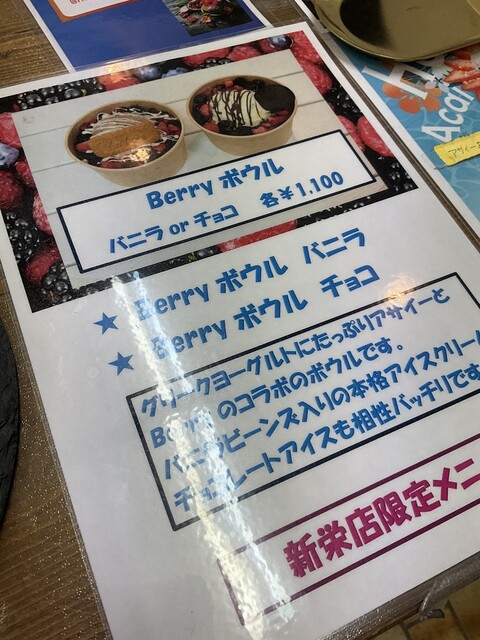 Berry ボウル
バニラ or チョコ 各￥1,100
★ Berry ボウル バニラ
★ Berry ボウル チョコ
グリークヨーグルトにたっぷりアサイーと
Berry のコラボのボウルです。
バニラビーンズ入りの本格アイスクリーム
チョコレートアイスも相性バッチリです
新栄店限定メニ
Acai